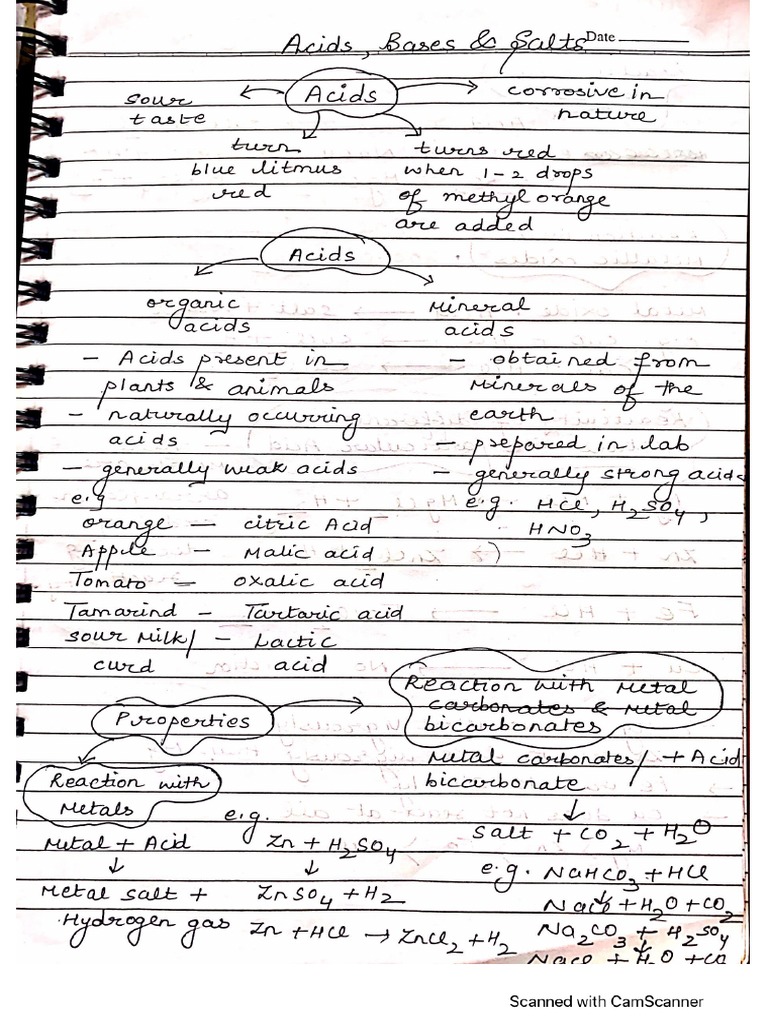 Acids, Bases & Salts Date
Acids
sour taste
corrosive in nature
turn blue litmus red
turns red when 1-2 drops of methyl orange are added
Acids
organic acids
- Acids present in plants & animals
- naturally occurring acids
- generally weak acids
e.g
orange - citric Acid
Apple - Malic acid
Tomato - oxalic acid
Tamarind - Tartaric acid
sour milk/ curd - Lactic acid
Mineral acids
- obtained from Minerals of the earth
- prepared in lab
- generally strong acids
e.g. HCl, H2SO4, HNO3
Properties
Reaction with Metals
Metal + Acid
↓
Metal salt + Hydrogen gas
e.g.
Zn + H2SO4
↓
ZnSO4 + H2
Zn + HCl → ZnCl2 + H2
Reaction with Metal carbonates & Metal bicarbonates
Metal carbonates/ bicarbonate + Acid
↓
Salt + CO2 + H2O
e.g. NaHCO3 + HCl
↓
+ H2O + CO2
Na2CO3 + H2SO4
↓
+ H2O +
Scanned with CamScanner